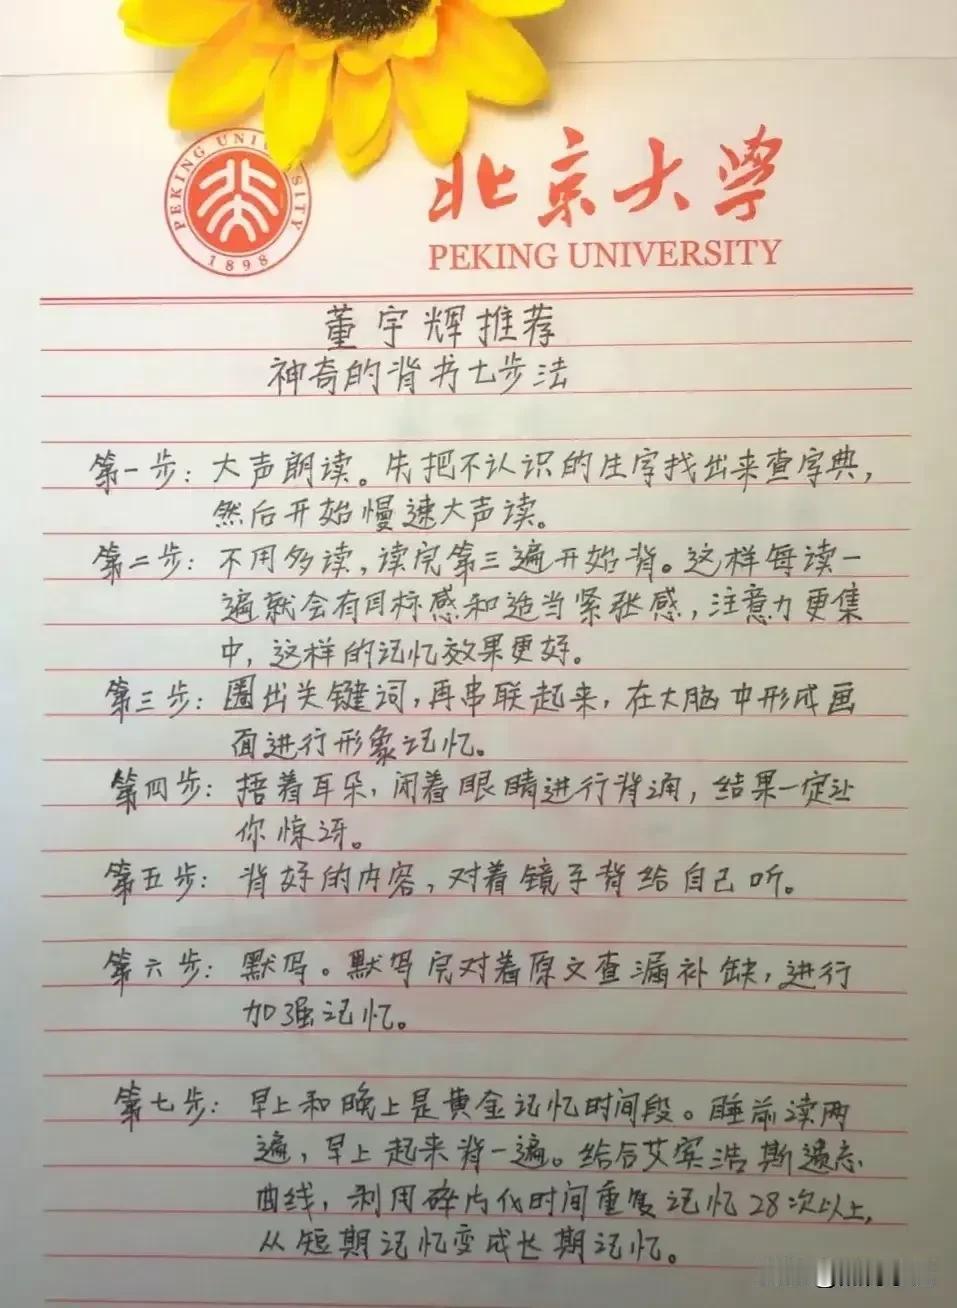 PEKING UNIVERSITY
1898
北京大学
PEKING UNIVERSITY
董宇辉推荐
神奇的背书七步法
第一步：大声朗读。先把不认识的生字找出来查字典，
然后开始慢速大声读。
第二步：不用多读，读完第三遍开始背。这样每读一
遍就会有目标感和适当紧张感，注意力更集
中，这样的记忆效果更好。
第三步：圈出关键词，再串联起来，在大脑中形成画
面进行形象记忆。
第四步：捂着耳朵，闭着眼睛进行背诵，结果一定让
你惊讶。
第五步：背好的内容，对着镜子背给自己听。
第六步：默写。默写完对着原文查漏补缺，进行
加强记忆。
第七步：早上和晚上是黄金记忆时间段。睡前读两
遍，早上起来背一遍。结合艾宾浩斯遗忘
曲线，利用碎片化时间重复记忆28次以上，
从短期记忆变成长期记忆。